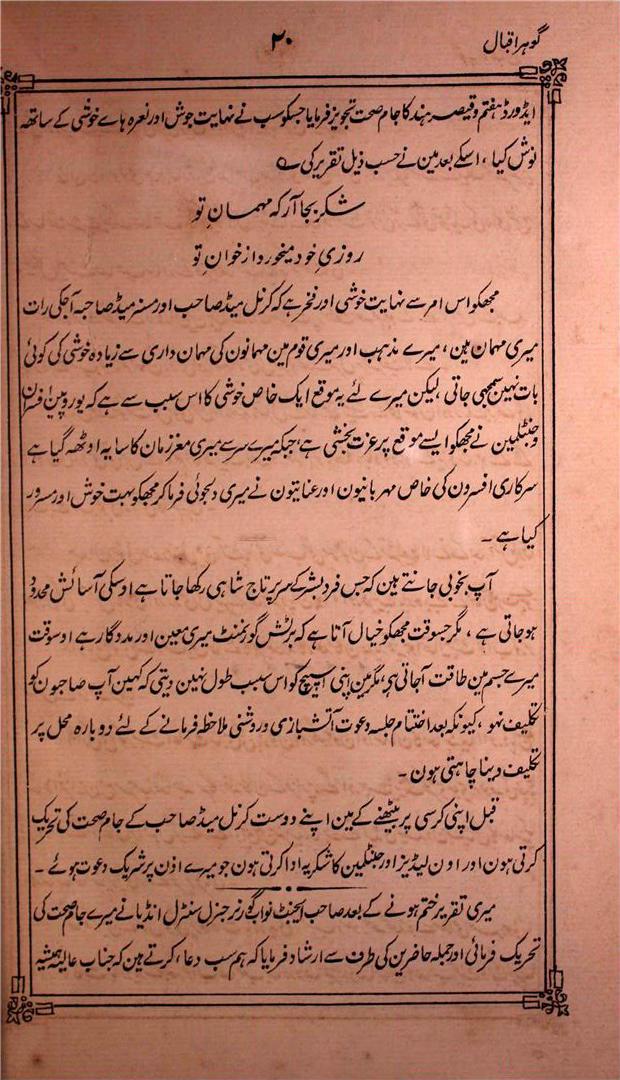 گوہر اقبال
۲۰
ایڈورڈ ہفتم وقیصر ہند کا جام صحت تجویز فرمایا جسکو سب نے نہایت جوش اور نعرہ ہاے خوشی کے ساتھہ
نوش کیا ، اسکے بعد مین نے حسب ذیل تقریر کی
شکر بجا آر کہ مہمانِ تو
روزیِ خود میخورد از خوانِ تو
مجھکو اس امر سے نہایت خوشی اور فخر ہے کہ کرنل میڈ صاحب اور مسز میڈ صاحبہ آجکی رات
میری مہمان ہین ، میرے مذہب اور میری قوم مین مہمانون کی مہمان داری سے زیادہ خوشی کی کوئی
بات نہین سمجھی جاتی ، لیکن میرے لئے یہ موقع ایک خاص خوشی کا اس سبب سے ہے کہ یوروپین افسران
و جنٹلمین نے مجھکو ایسے موقع پر عزت بخشی ہے ، جبکہ میرے سر سے میری معزز مان کا سایہ اوٹھہ گیا ہے
سرکاری افسرون کی خاص مہربانیون اور عنایتون نے میری دلجوئی فرما کر مجھکو بہت خوش اور مسرور
کیا ہے ۔
آپ بخوبی جانتے ہین کہ جس فرد بشر کے سر پر تاج شاہی رکھا جاتا ہے اوسکی آسائش محدود
ہو جاتی ہے ، مگر جسوقت مجھکو خیال آتا ہے کہ برٹش گورنمنٹ میری معین اور مددگار ہے اوسوقت
میرے جسم مین طاقت آجاتی ہی ، مگر مین اپنی اسپیچ کو اس سبب طول نہین دیتی کہ کہین آپ صاحبون کو
تکلیف نہو ، کیونکہ بعد اختتام جلسہ دعوت آتشبازی و روشنی ملاحظہ فرمانے کے لئے دوبارہ محل پر
تکلیف دینا چاہتی ہون ۔
قبل اپنی کرسی پر بیٹھنے کے مین اپنے دوست کرنل میڈ صاحب کے جام صحت کی تحریک
کرتی ہون اور اون لیڈیز اور جنٹلمین کا شکریہ ادا کرتی ہون جو میرے اذن پر شریک دعوت ہوئے ۔
میری تقریر ختم ہونے کے بعد صاحب ایجنٹ نواب گورنر جنرل سنٹرل انڈیا نے میرے جام صحت کی
تحریک فرمائی اور جملہ حاضرین کی طرف سے ارشاد فرمایا کہ ہم سب دعا ، کرتے ہین کہ جناب عالیہ ہمیشہ